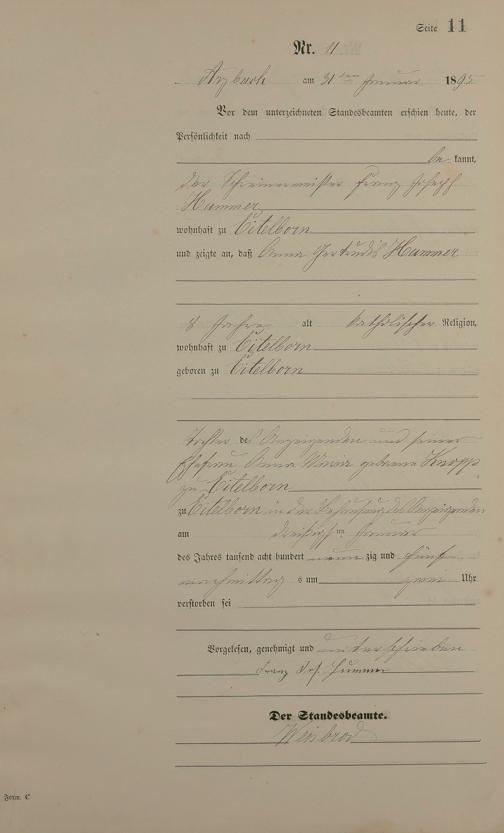 Seite 11
Nr. 11
Arzbach am 31ten Januar 1895
Vor dem unterzeichneten Standesbeamten erschien heute, der
Persönlichkeit nach
be kannt,
der Schreinermeister Franz Joseph
Hammer
wohnhaft zu Eitelborn
und zeigte an, daß Anna Gertrudis Hammer
8 Jahre alt katholischer Religion,
wohnhaft zu Eitelborn
geboren zu Eitelborn
Tochter des Anzeigenden und seiner
Ehefrau Anna Maria geborene Knopp
zu Eitelborn
zu Eitelborn in der Behausung des Anzeigenden
am dreißigsten Januar
des Jahres tausend acht hundert neun zig und fünf
nachmittag s um zwei Uhr
verstorben sei
Vorgelesen, genehmigt und unterschrieben
Franz Jos. Hammer
Der Standesbeamte.
Weisbrod
Form. C